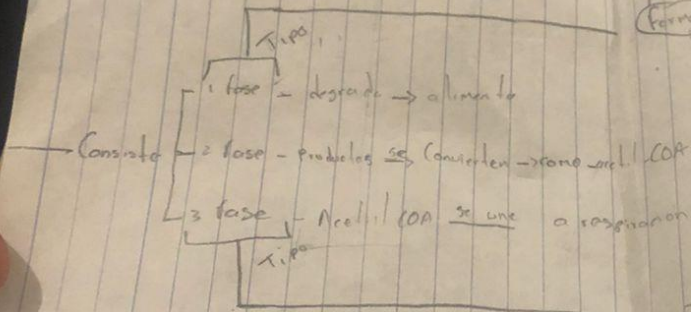 Form
Tipo
1 fase - degrada → alimento
Consiste
2 fase - Productos se Convierten → como acetil COA
3 fase - Acetil COA se une a raspiranon
Tipo